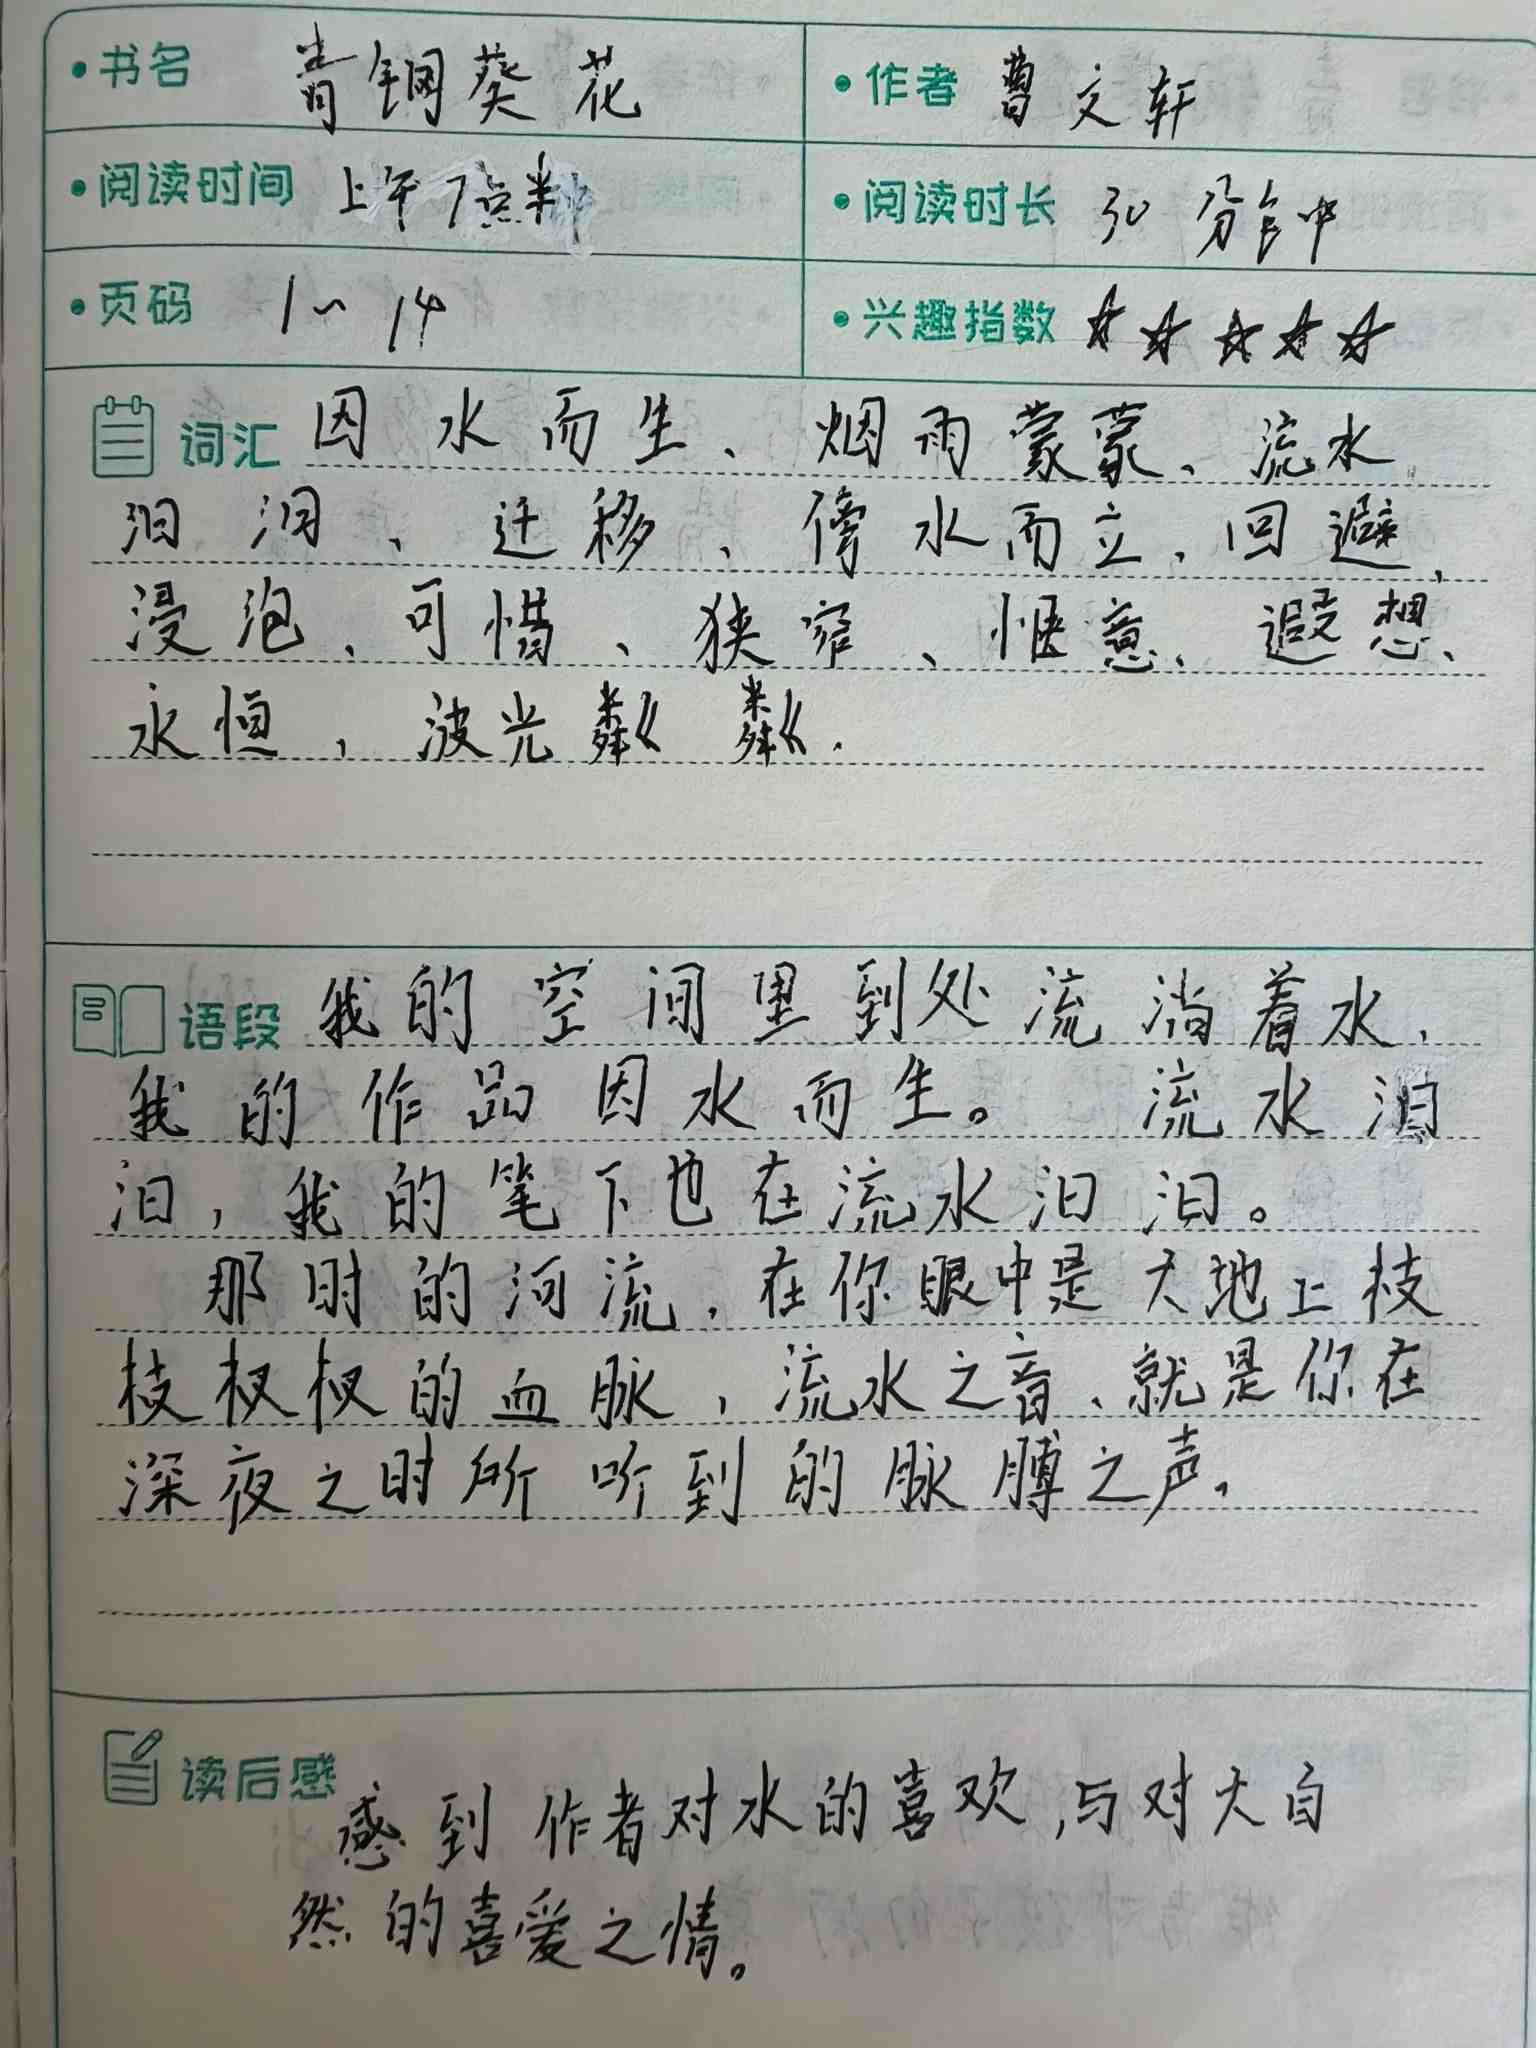 书名 青铜葵花 作者 曹文轩
阅读时间 上午7点半 阅读时长 30分钟
页码 1～14 兴趣指数 ☆☆☆☆☆
词汇 因水而生、烟雨蒙蒙、流水
汩汩、迁移、傍水而立、回避、
浸泡、可惜、狭窄、惬意、遐想、
永恒、波光粼粼.
语段 我的空间里到处流淌着水,
我的作品因水而生。 流水汩
汩,我的笔下也在流水汩汩。
那时的河流,在你眼中是大地上枝
枝杈杈的血脉,流水之音、就是你在
深夜之时所听到的脉膊之声,
读后感
感到作者对水的喜欢,与对大自
然的喜爱之情。